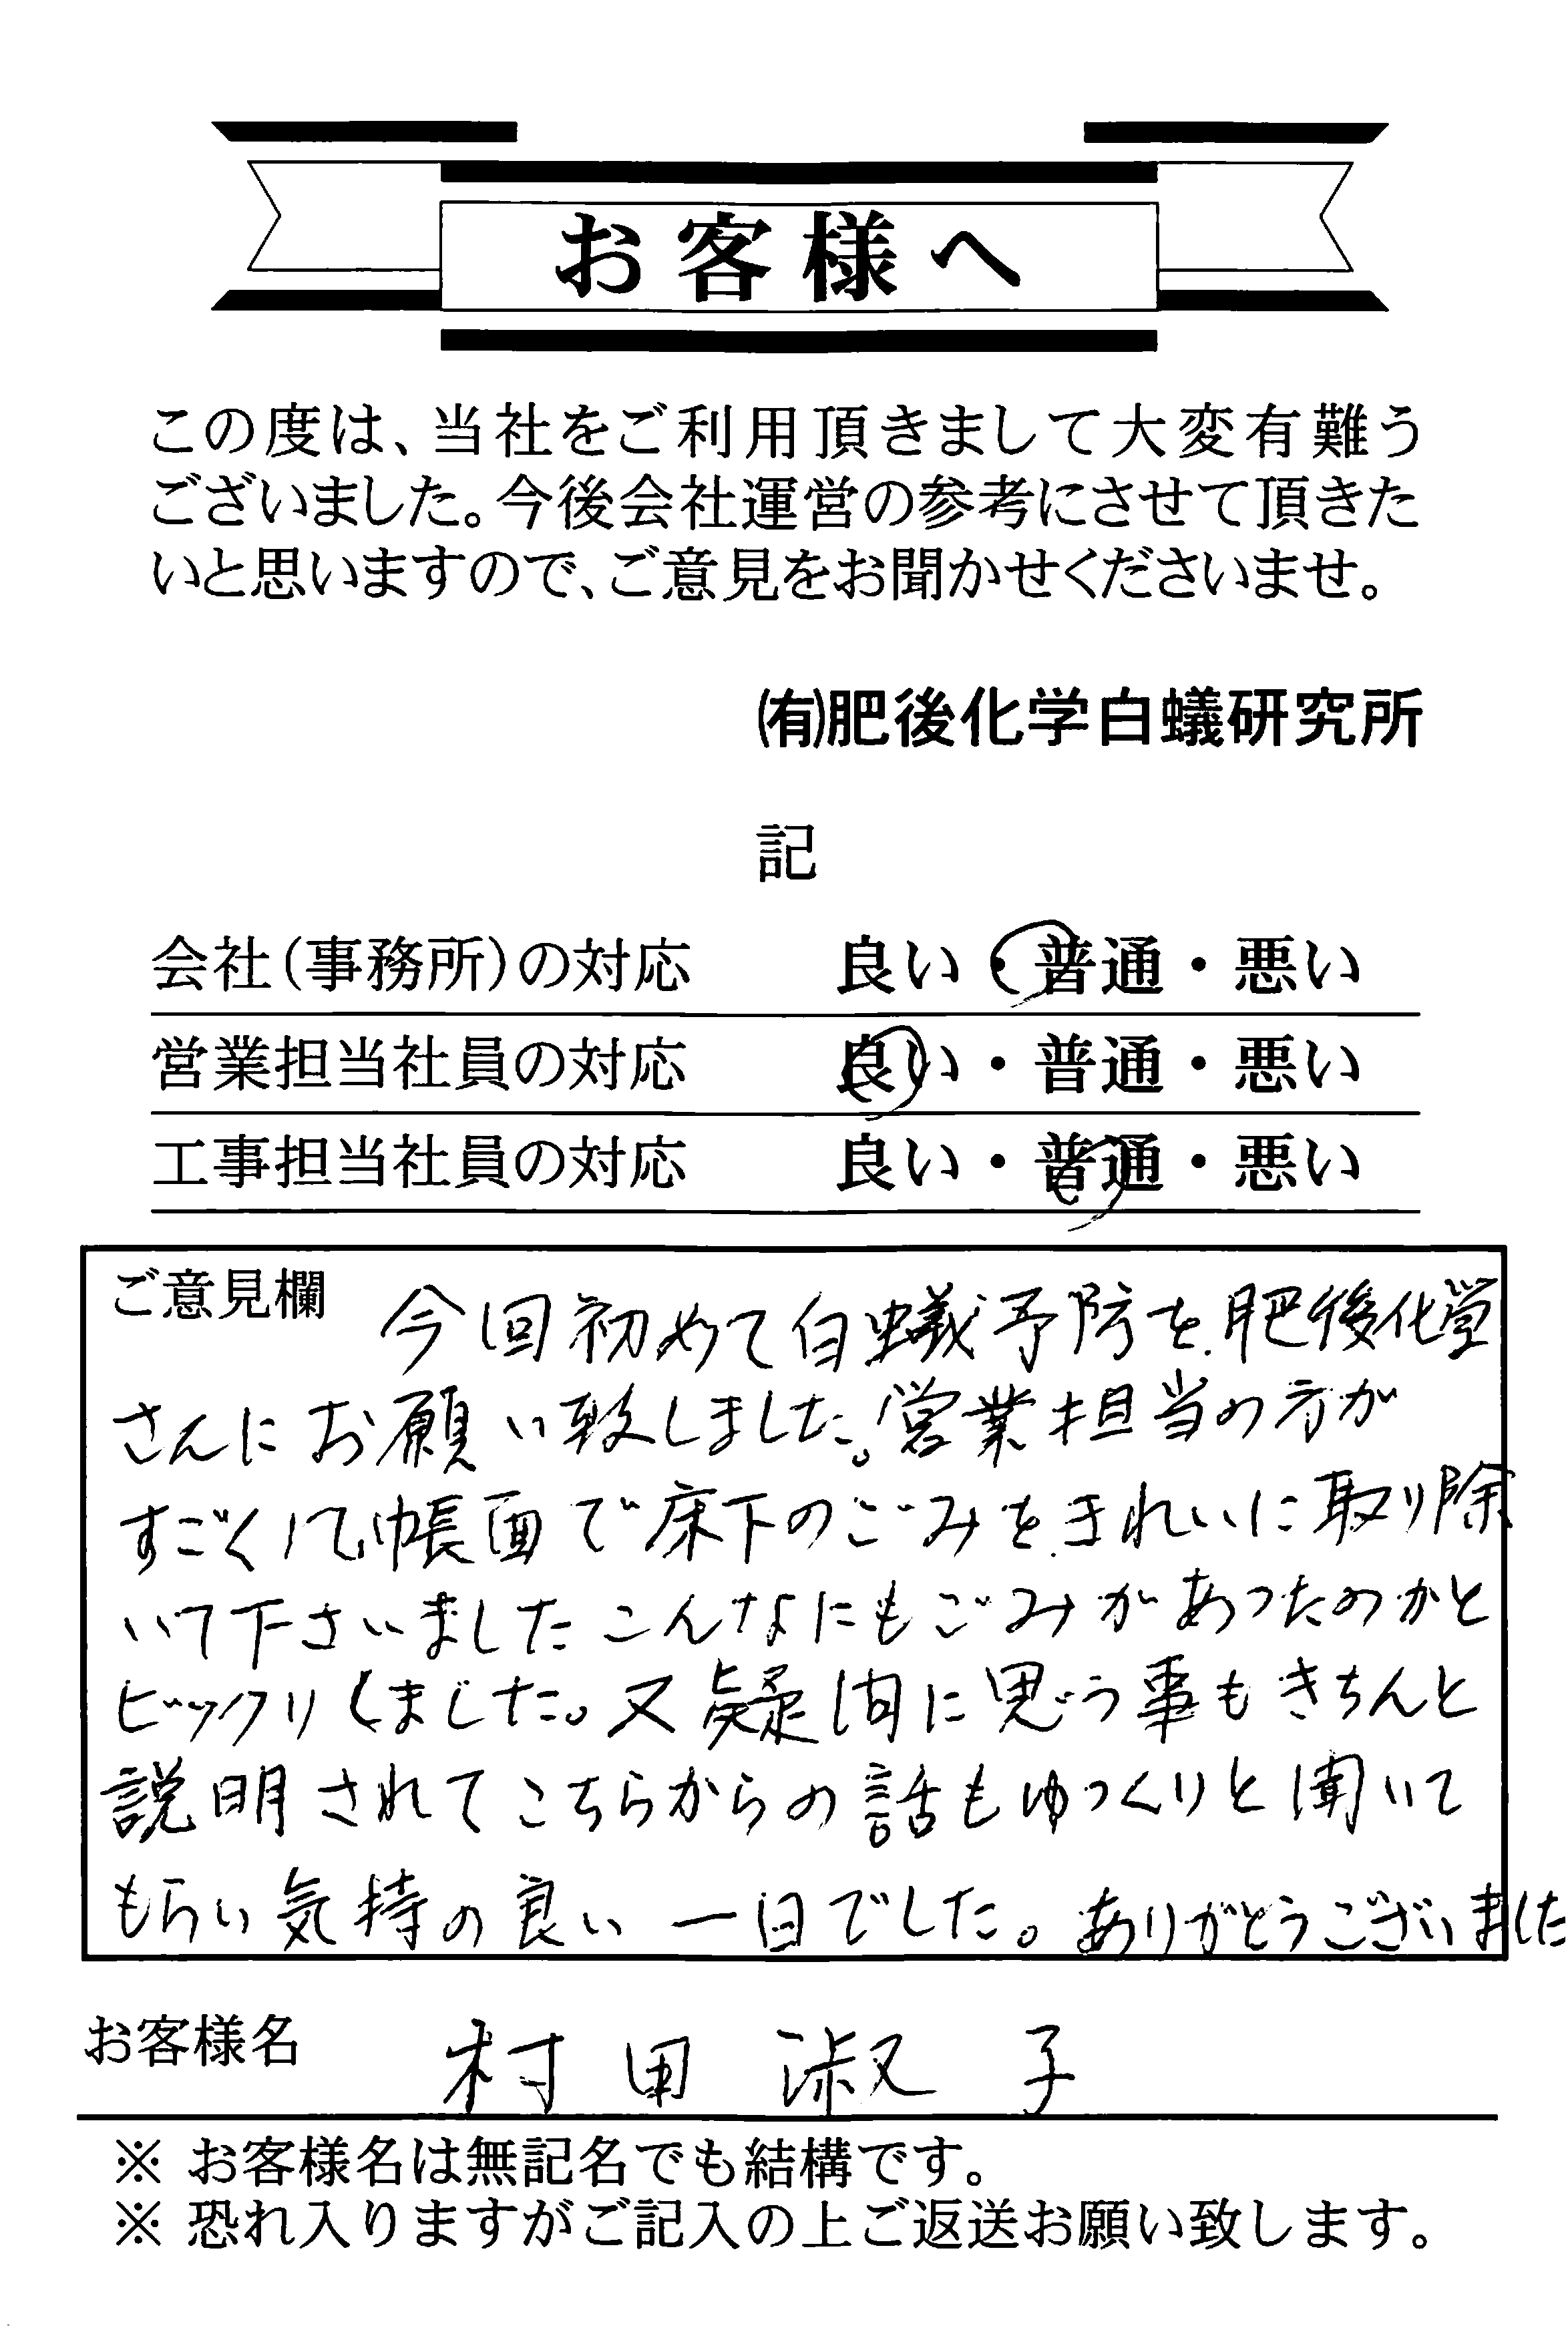 お客様へ
この度は、当社をご利用頂きまして大変有難う
ございました。今後会社運営の参考にさせて頂きた
いと思いますので、ご意見をお聞かせくださいませ。
㈲肥後化学白蟻研究所
記
会社(事務所)の対応 良い・普通・悪い
営業担当社員の対応 良い・普通・悪い
工事担当社員の対応 良い・普通・悪い
ご意見欄 今回初めて白蟻予防を肥後化学
さんにお願い致しました。営業担当の方が
すごく几帳面で床下のごみをきれいに取り除
いて下さいましたこんなにもごみがあったのかと
ビックリしました。又疑問に思う事もきちんと
説明されてこちらからの話もゆっくりと聞いて
もらい気持の良い一日でした。ありがとうございました
お客様名 村田 淑子
※ お客様名は無記名でも結構です。
※ 恐れ入りますがご記入の上ご返送お願い致します。